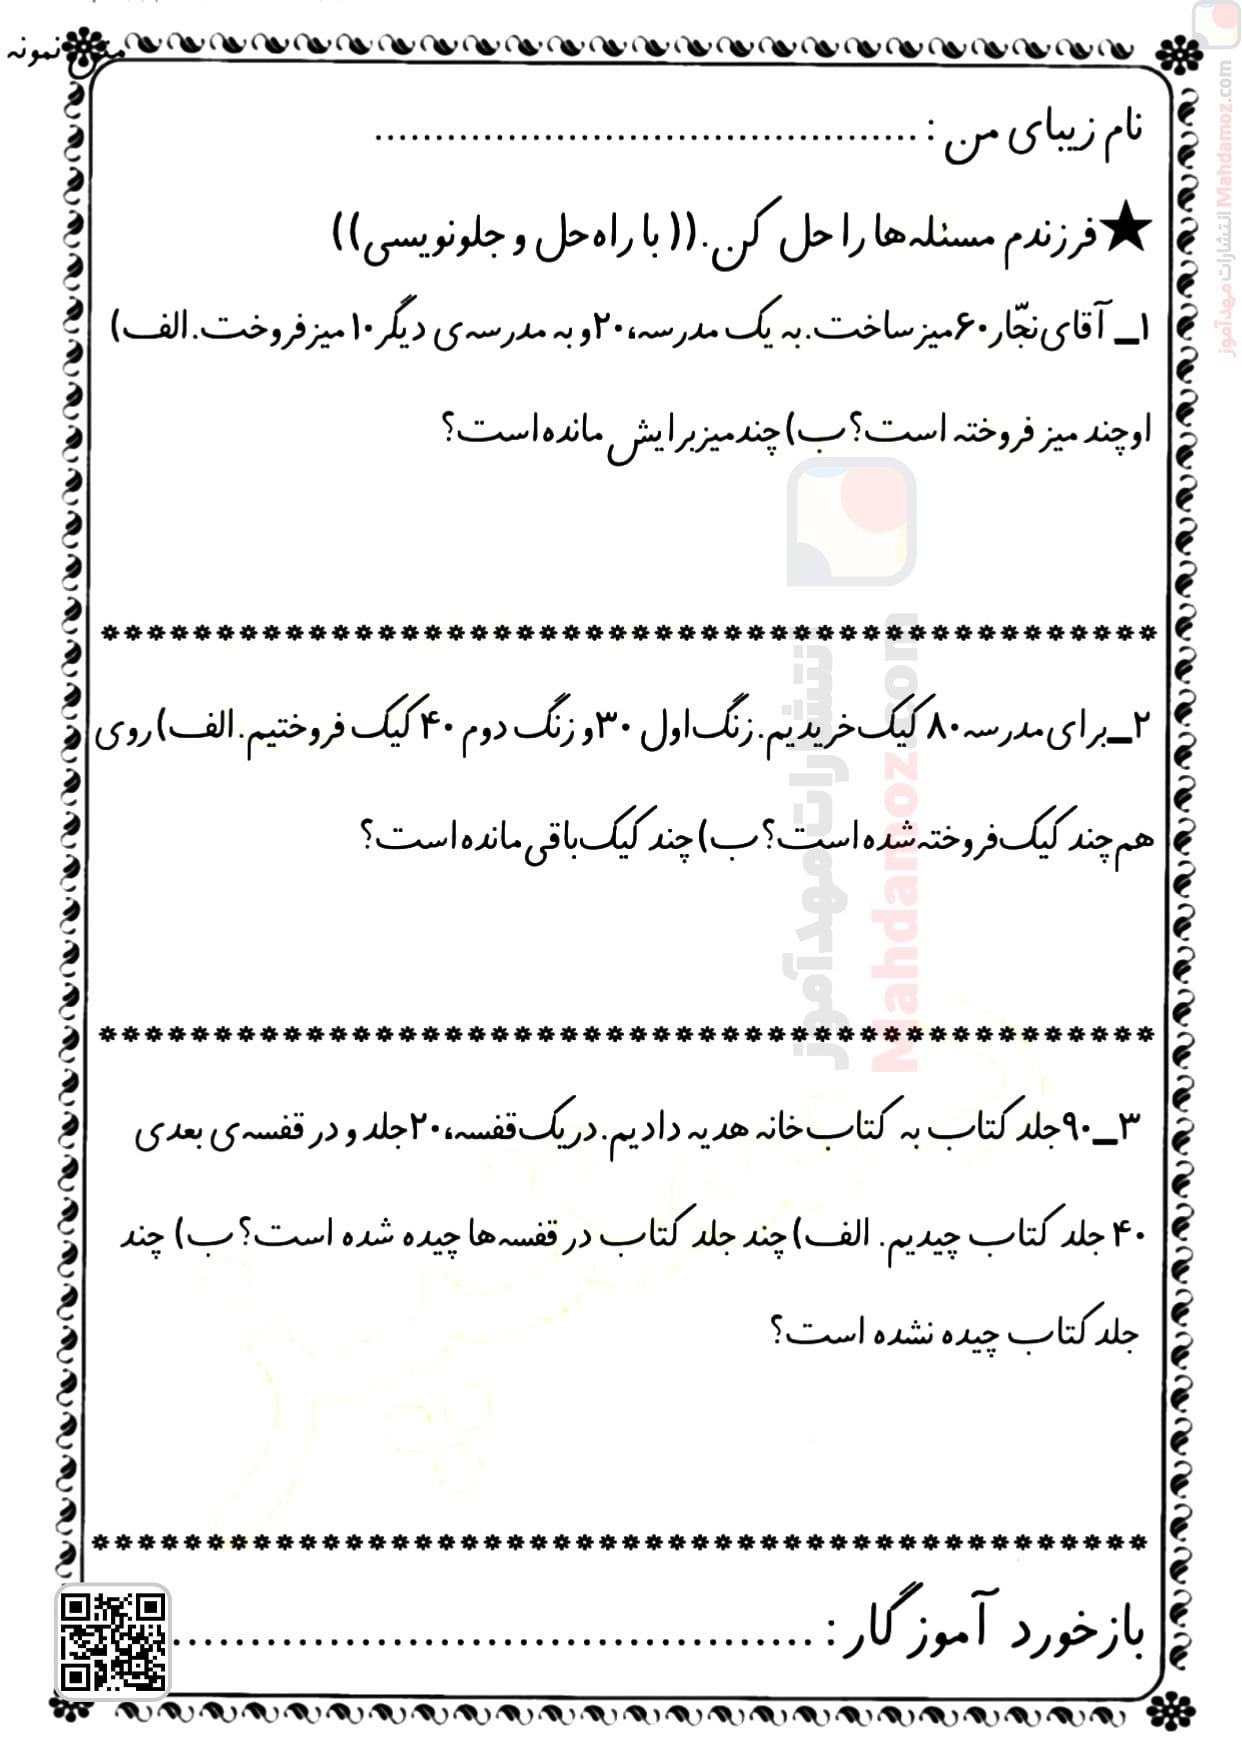 متن نمونه
نام زیبای من : ............................................
★فرزندم مسئله‌ها را حل کن.(( با راه‌حل و جلونویسی))
۱_ آقای نجّار۶۰میز ساخت. به یک مدرسه،۲۰و به مدرسه‌ی دیگر۱۰میز فروخت. الف)
او چند میز فروخته است؟ ب) چند میز برایش مانده است؟
۲_برای مدرسه۸۰کیک خریدیم. زنگ اول ۳۰و زنگ دوم ۴۰کیک فروختیم. الف) روی
هم چند کیک فروخته شده است؟ ب) چند کیک باقی مانده است؟
۳_۹۰جلد کتاب به کتاب‌خانه هدیه دادیم. در یک قفسه،۲۰جلد و در قفسه‌ی بعدی
۴۰ جلد کتاب چیدیم. الف) چند جلد کتاب در قفسه‌ها چیده شده است؟ ب) چند
جلد کتاب چیده نشده است؟
بازخورد آموزگار : ............................................
انتشارات مهدآموز
Mahdamoz.com
انتشارات مهدآموز Mahdamoz.com